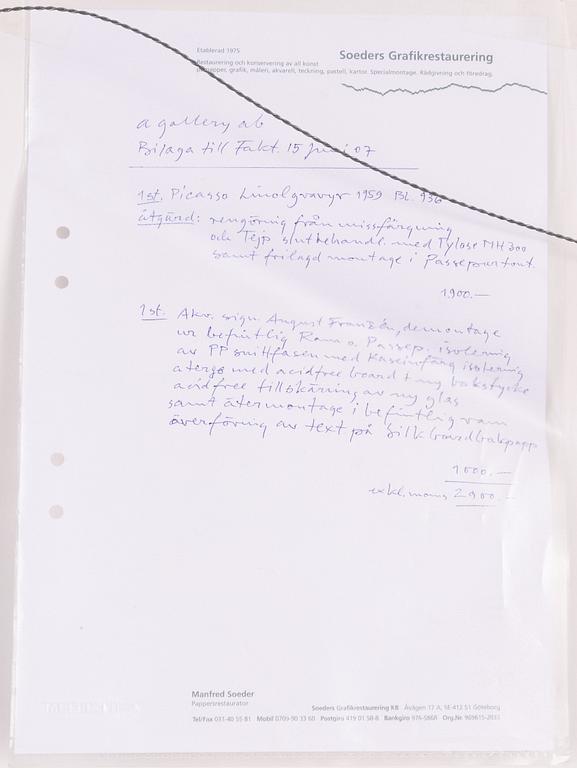 Etablerad 1975
Soeders Grafikrestaurering
Restaurering och konservering av all konst
på papper, grafik, måleri, akvarell, teckning, pastell, kartor. Specialmontage. Rådgivning och föredrag.
a gallery ab
Bilaga till Fakt. 15 juni 07
1st. Picasso Linolgravyr 1959 BL. 936
åtgärd: rengöring från missfärgning
och Tejp slutbehandl. med Tylose MH300
samt frilagd montage i Passepartout.
1900.—
1st. Akv. sign. August Franzén, demontage
ur befintlig Ram o. Passep. isolering
av PP snittfasen med Kaseinfärg isolering
med acidfree board + ny bakstycke
acidfree tillskärning av ny glas
samt återmontage i befintlig ram
överföring av text på
1000.—
exkl. moms 2900.—
Manfred Soeder
Pappersrestaurator
Soeders Grafikrestaurering KB Älvägen 17 A, SE-412 51 Göteborg
Tel/Fax 031-40 55 81 Mobil 0709-90 33 60 Postgiro 419 01 58-8 Bankgiro Org.Nr